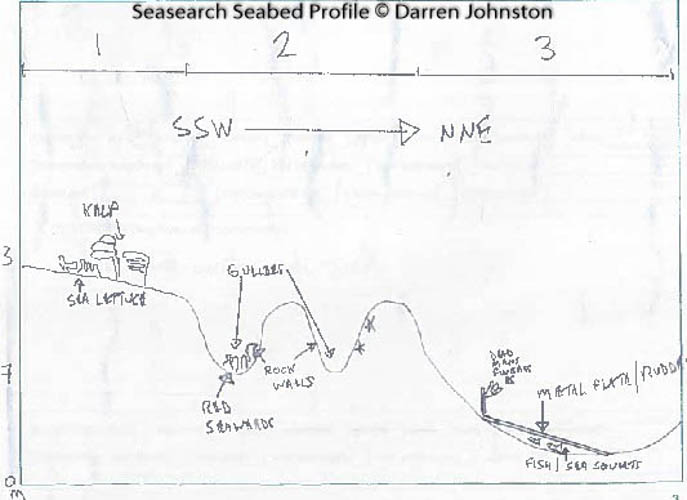 Seasearch Seabed Profile © Darren Johnston
1 2 3
SSW NNE
KALP
3
SEA LETTUCE
GULLEYS
7
ROCK
WALLS
RED
SEAWARDS
DEAD
MANS
METAL PLATE/RUDDE
FISH/SEA SQUIRTS
0
m